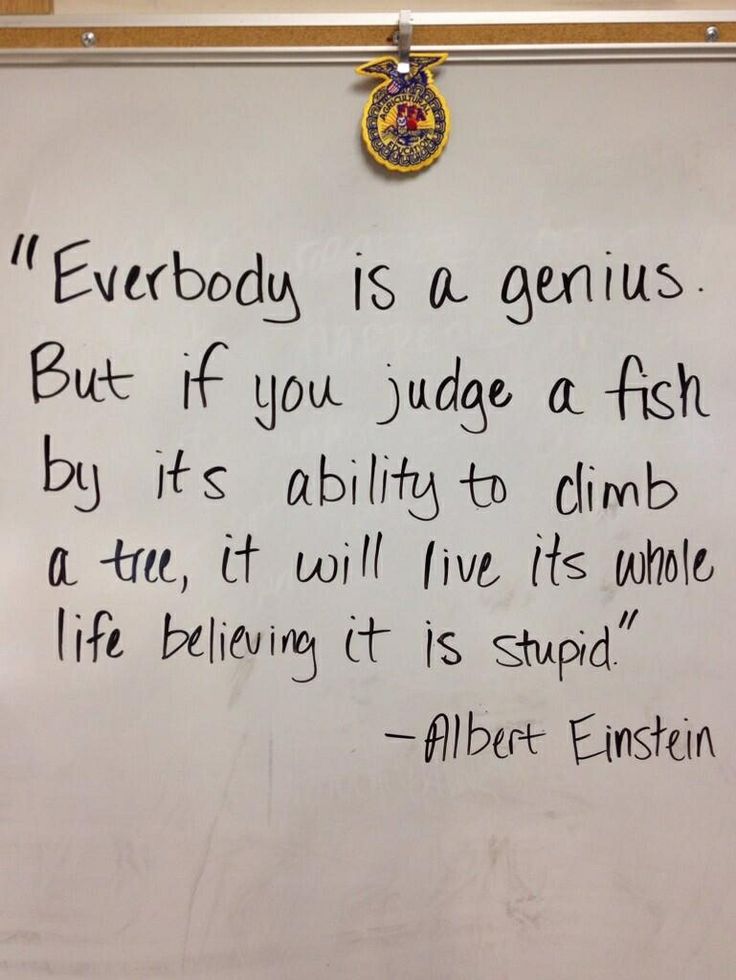 AGRICULTURAL
FFA
EDUCATION
"Everbody is a genius.
But if you judge a fish
by its ability to climb
a tree, it will live its whole
life believing it is stupid."
-Albert Einstein